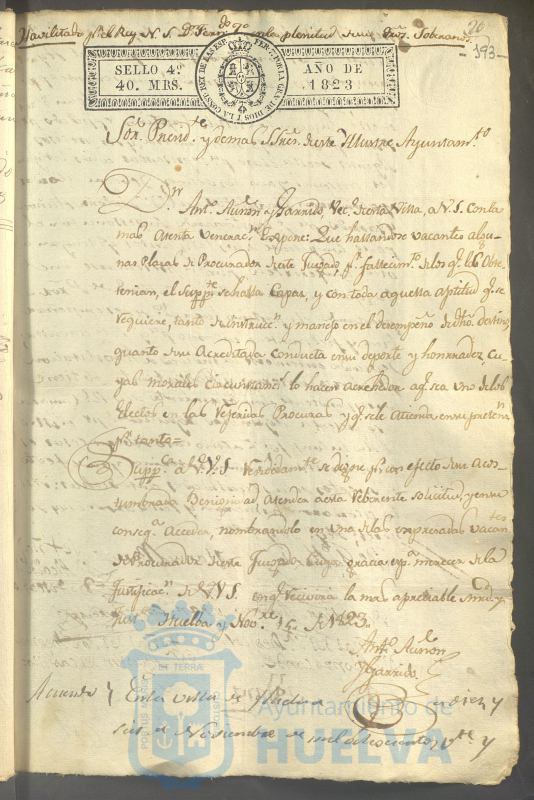 Havilitado pr. el Rey N. S. Dn. Fern.do 7o en la plenitud de su Soberano
20
193
SELLO 4.º
40. MRS.
AÑO DE
1823
Sor. Presid.te y demas SSres. de este Yllustre Ayuntam.to
Dn.
Ant.o Auñon y Garrido, Vec.o de esta Villa, a V.S. con la
mas atenta venerac.n Expone: Que hallandose vacantes algu-
nas Plazas de Procurador de este Juzgado, pr. fallecim.to de los q.e las obte-
nian, el Supp.te se halla capaz, y con toda aquella aptitud q.e se
requiere, tanto de instrucc.n y manejo en el desempeño de dho. destino,
quanto de su acreditada conducta en su deporte y honrradez, cu-
yas morales circunstanc.s lo hacen acrehedor a q.e sea uno de los
Electos en las referidas Procuras y q.e se le atienda en su pretens.n
pr. tanto =
Supp.ca a V.S. rendidam.te se digne pr. un efecto de su acos-
tumbrada Benignidad, atender a esta reberente solicitud, y en su
conseq.a acceder, nombrandolo en una de las expresadas vacan.tes
de Procurador de este Juzgado. Cuya gracia esp.a merecer de la
Justificac.n de V.S. en q.e recivira la mas apreciable mrd. y
just.a Huelva y Nov.re 15 de 1823.
Ant.o Auñon
y Garrido
Acuerdo } En la villa de Huelva en diez y
seis de Noviembre de mil ochocientos v.te y
Ayuntamiento de
HUELVA